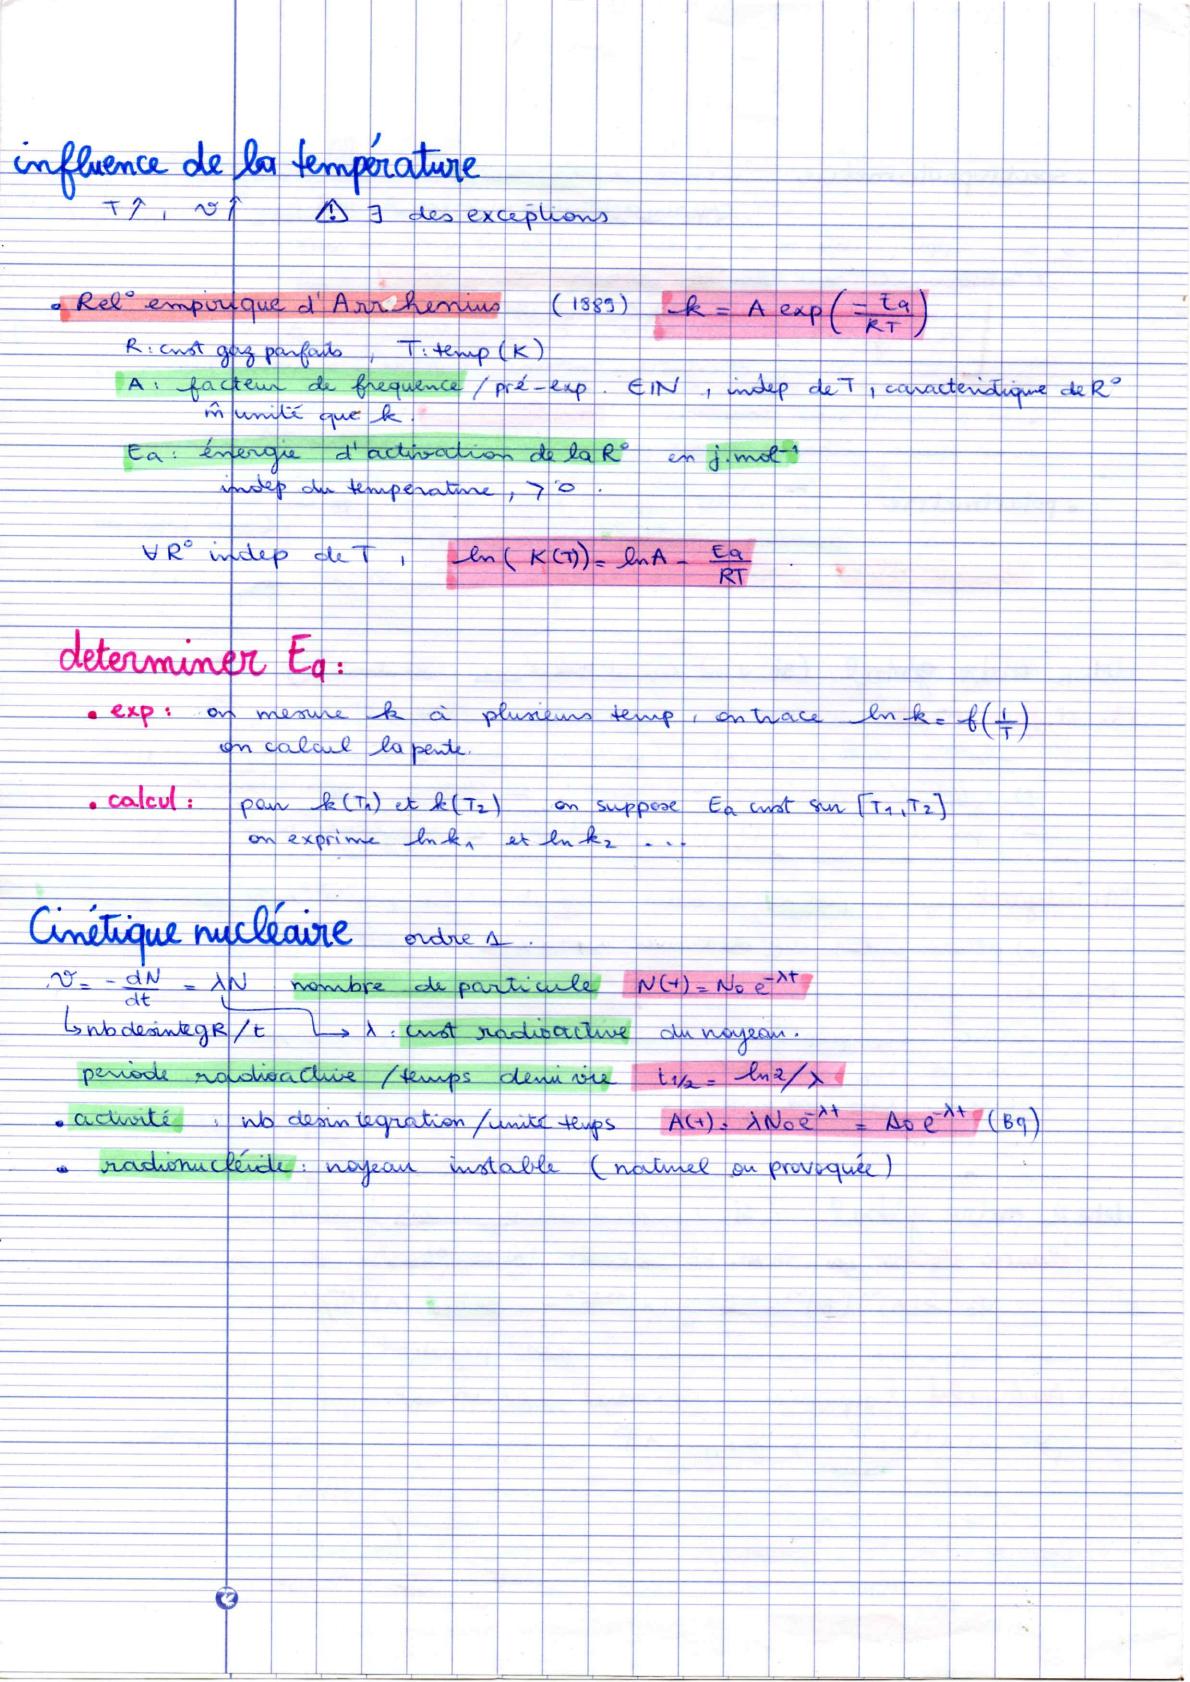 influence de la température
T↑, v↑ ⚠ ∃ des exceptions
• Rel° empirique d'Arrhenius (1889) k = A exp(-Ea/RT)
R: cnst gaz parfaits, T: temp (K)
A: facteur de frequence / pré-exp. ∈ IN, indep de T, caracteristique de R°
m̂ unité que k.
Ea: énergie d'activation de la R° en j.mol⁻¹
indep du temperature, > 0.
∀ R° indep de T, ln(K(T)) = lnA - Ea/RT.
determiner Ea:
• exp: on mesure k à plusieurs temp, on trace ln k = f(1/T)
on calcul la pente.
• calcul: par k(T1) et k(T2) on suppose Ea cnst sur [T1, T2]
on exprime ln k1 et ln k2 ...
Cinétique nucléaire ordre 1.
v = -dN/dt = λN nombre de particule N(t) = N0 e^-λt
↳ nb desintegR/t ↳ λ: cnst radioactive du noyeau.
periode radioactive / temps demi vie t1/2 = ln2/λ
• activité: nb desintegration / unité temps A(t) = λN0 e^-λt = A0 e^-λt (Bq)
• radionucléide: noyeau instable (naturel ou provoquée)